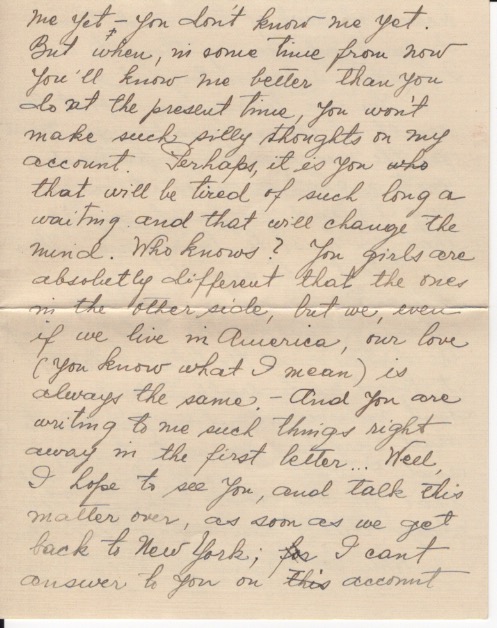 me yet - you don't know me yet.
But when, in some time from now
you'll know me better than you
do at the present time, you won't
make such silly thoughts on my
account. Perhaps, it is you who
that will be tired of such long a
waiting and that will change the
mind. Who knows? You girls are
absolutly different that the ones
in the other side, but we, even
if we live in America, our love
(you know what I mean) is
always the same. - And you are
writing to me such things right
away in the first letter... Well,
I hope to see you, and talk this
matter over, as soon as we get
back to New York; for I cant
answer to you on this account